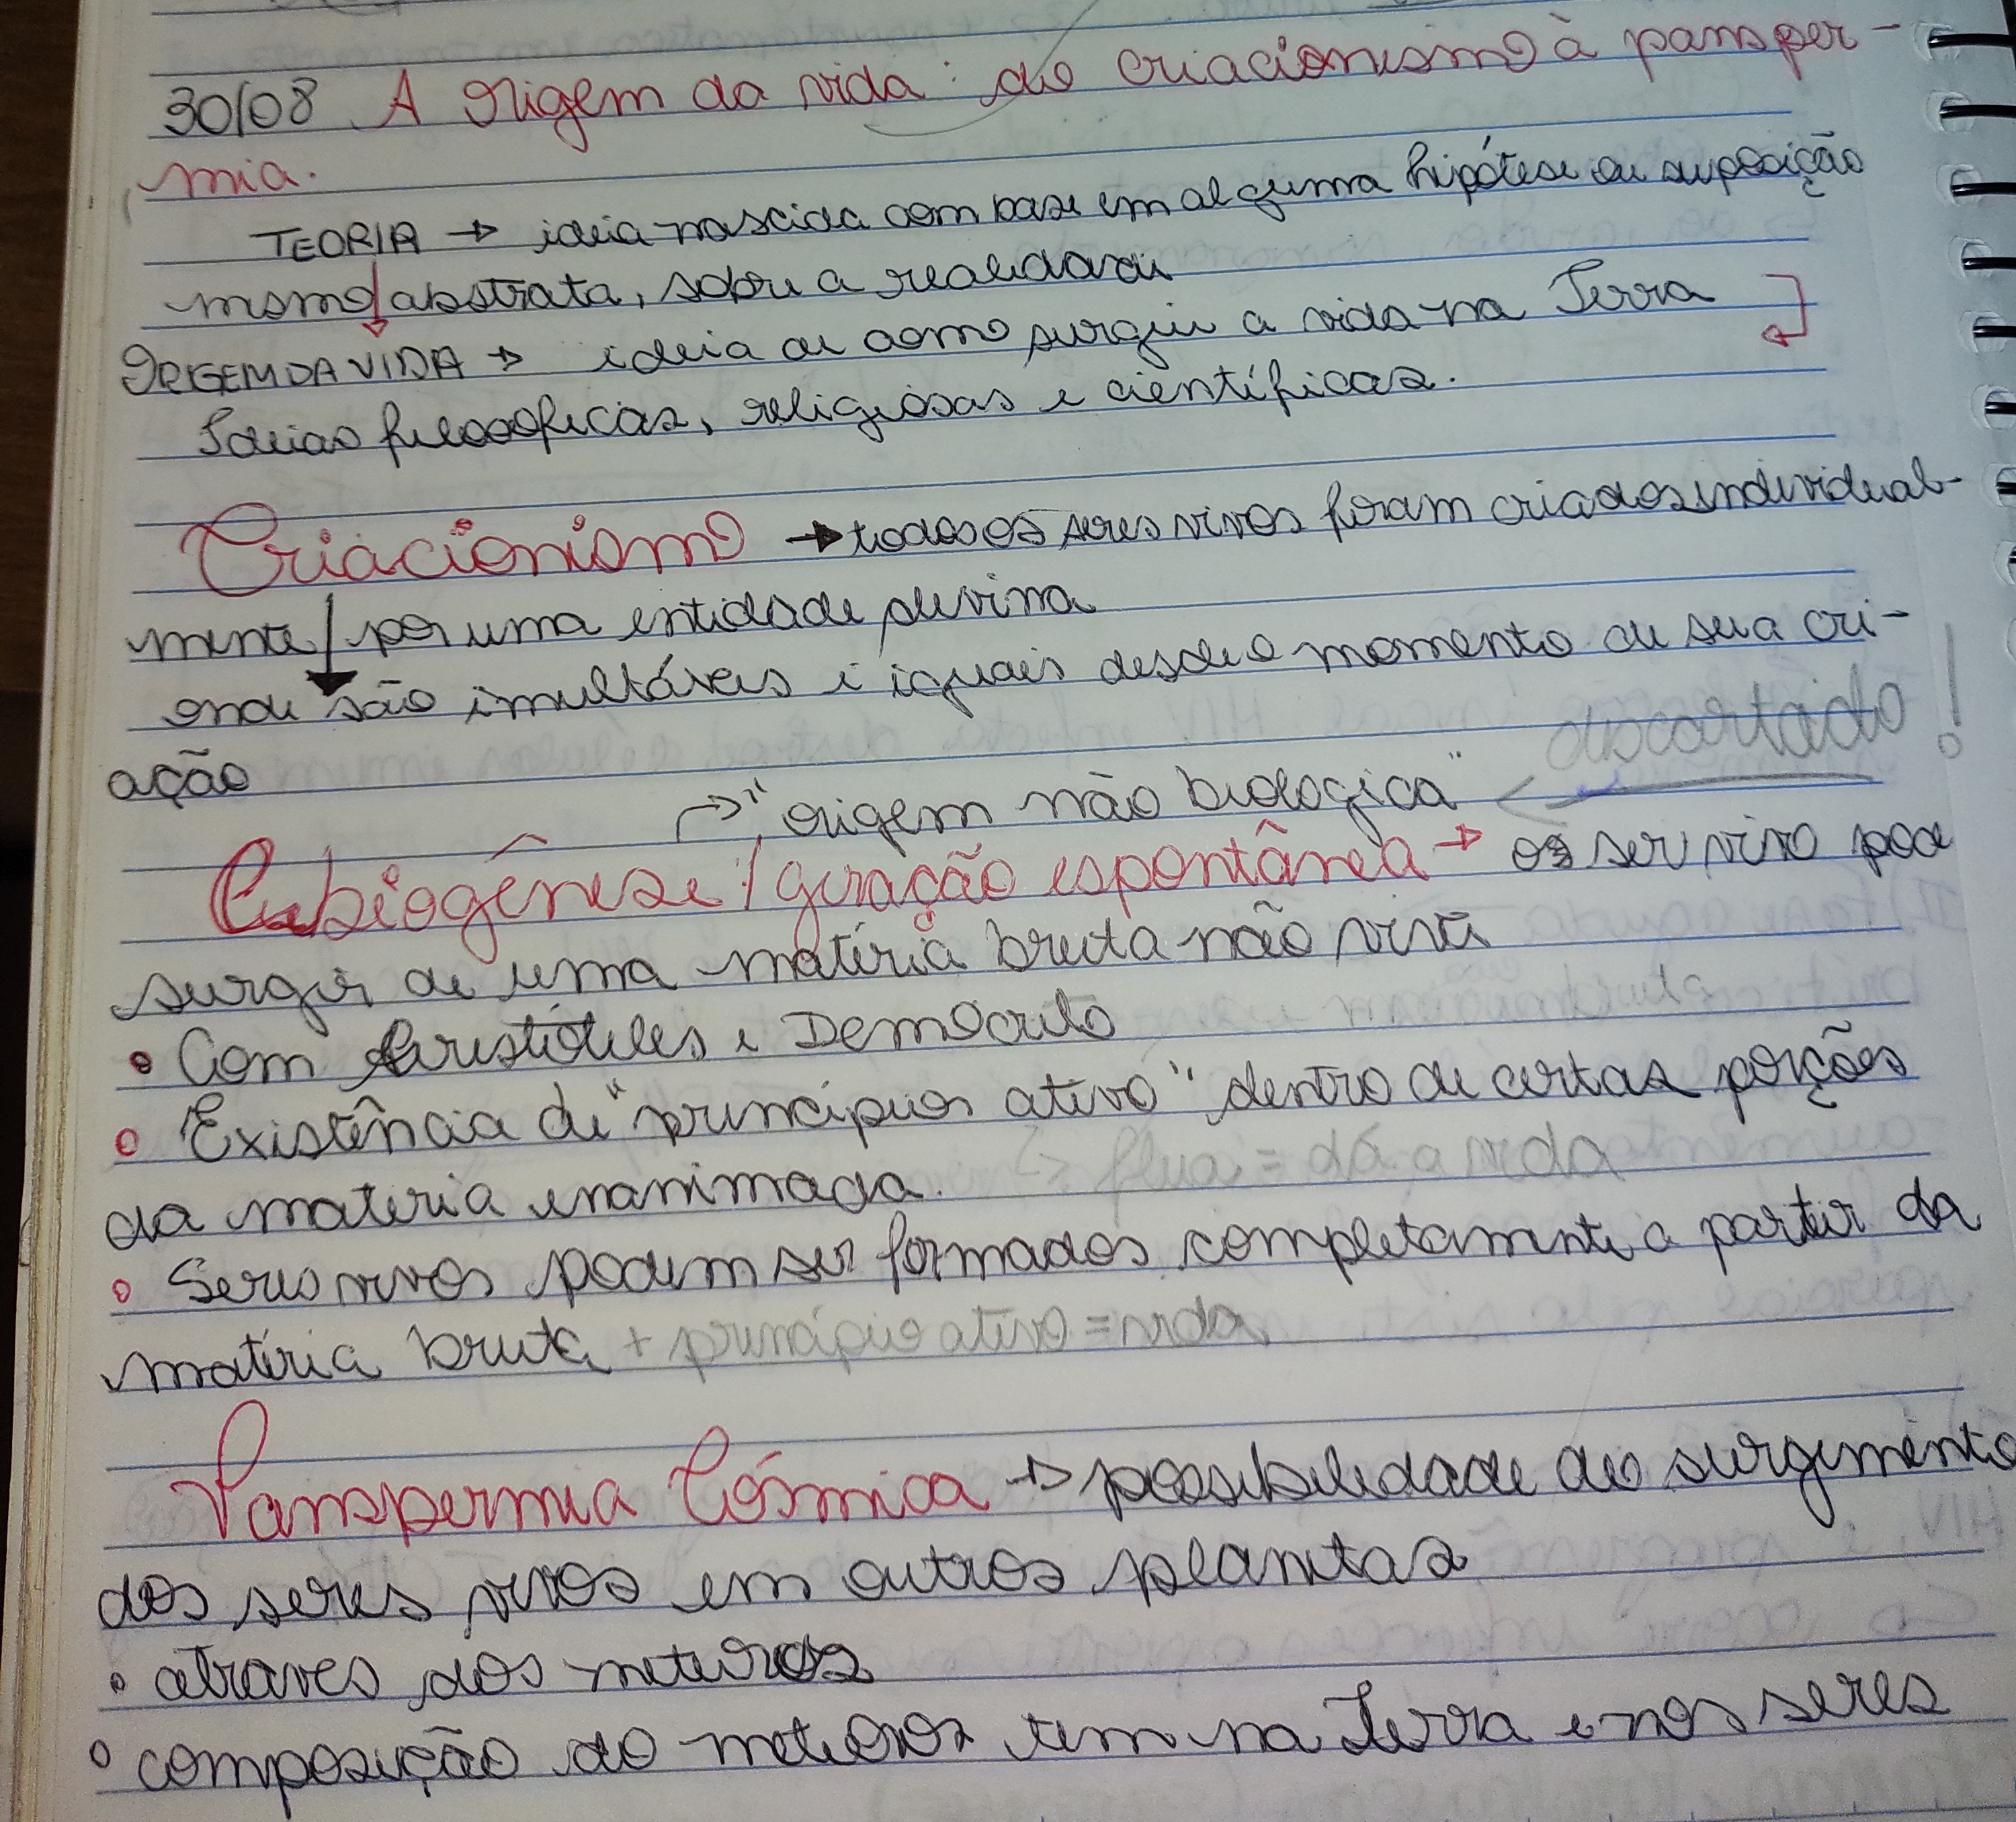 30/08 A origem da vida: do criacionismo à pansper-
mia.
TEORIA → ideia nascida com base em alguma hipótese ou suposição
mesmo abstrata, sobre a realidade
ORIGEM DA VIDA → ideia de como surgiu a vida na Terra
Ideias filosoficas, religiosas e científicas.
Criacionismo → todos os seres vivos foram criados individual-
mente por uma entidade divina
onde são imultáveis e iguais desde o momento de sua cri-
ação
descartado!
→ "origem não biologica"
Abiogênese / geração espontânea → o ser vivo pode
surgir de uma matéria bruta não viva
• Com Aristóteles e Demócrito
• Existência de "principios ativo" dentro de certas porções
↳ flua = dá a vida
da materia inanimada.
• Seres vivos podem ser formados completamente a partir da
matéria bruta + principio ativo = vida
Panspermia Cósmica → possibilidade do surgimento
dos seres vivos em outros planetas
• atraves dos meteiros
• composição do meteoros tem na Terra e nos seres